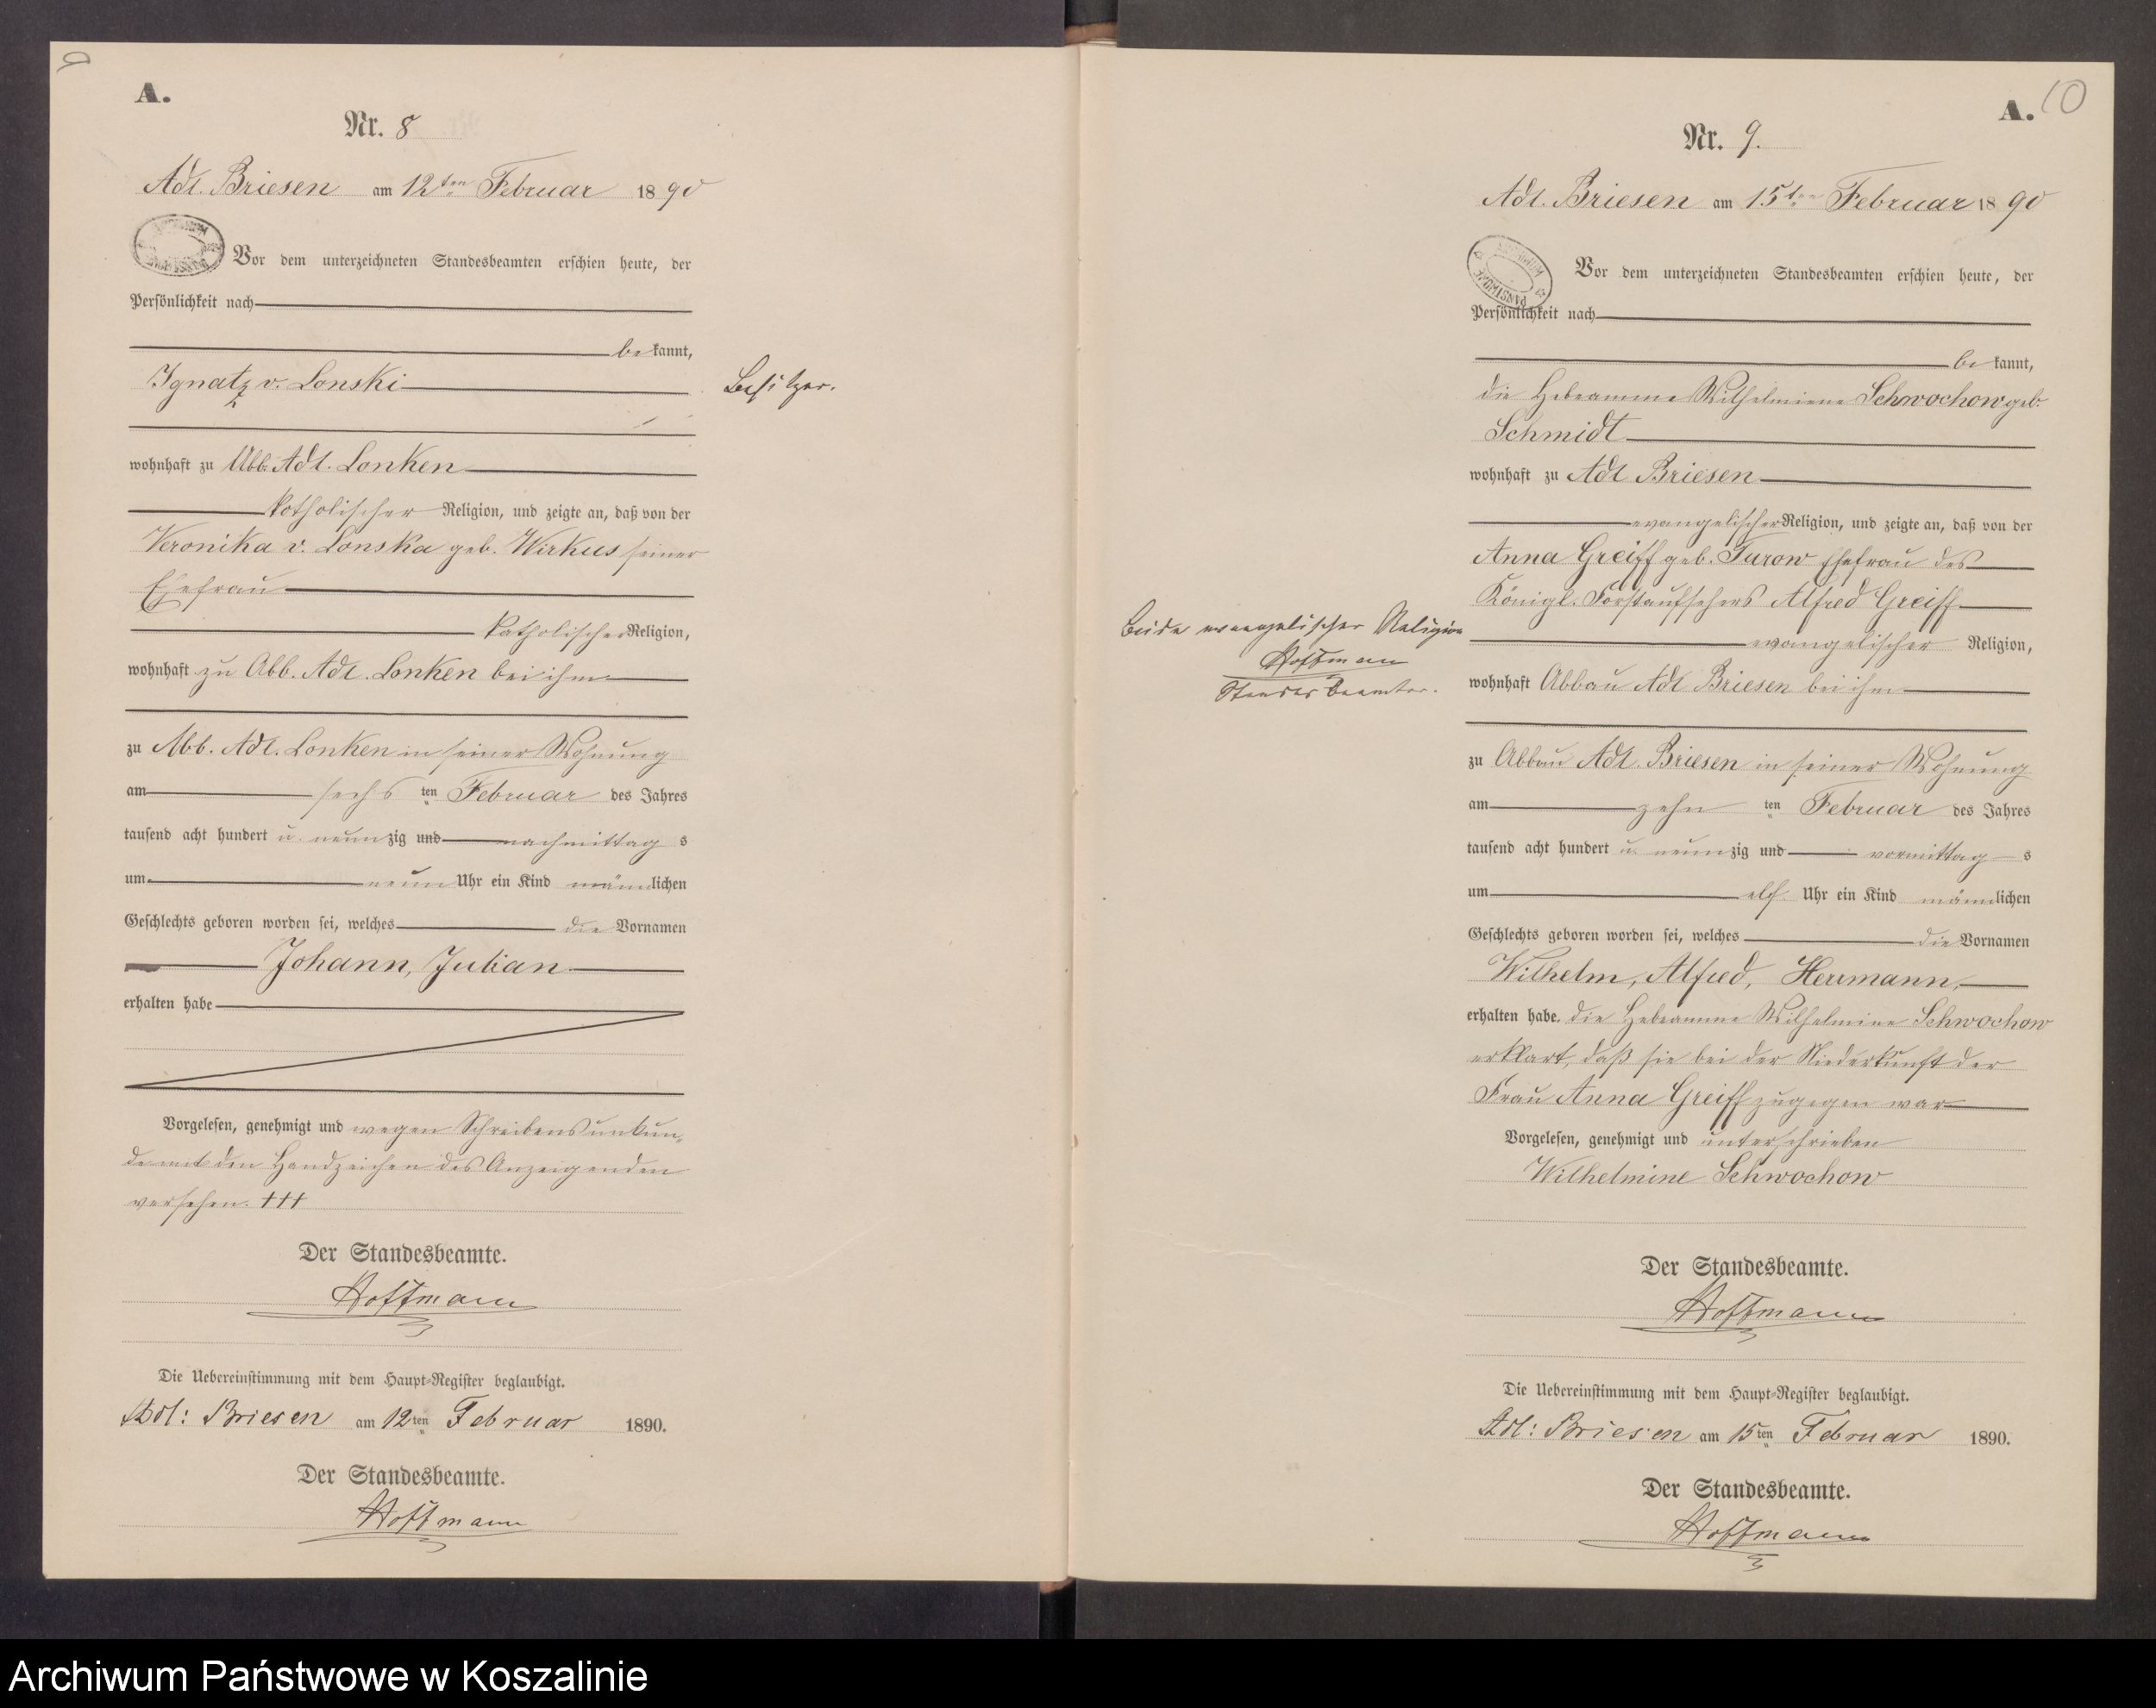 A.
Nr. 8
Adl. Briesen am 12ten Februar 1890
Vor dem unterzeichneten Standesbeamten erschien heute, der
Persönlichkeit nach
bekannt,
Ignatz v. Lonski
Besitzer.
wohnhaft zu Abb. Adl. Lonken
katholischer Religion, und zeigte an, daß von der
Veronika v. Lonska geb. Wirkus seiner
Ehefrau
katholischer Religion,
wohnhaft zu Abb. Adl. Lonken bei ihm
zu Abb. Adl. Lonken in seiner Wohnung
am sechs ten Februar des Jahres
tausend acht hundert u. neunzig und nachmittag s
um neun Uhr ein Kind männlichen
Geschlechts geboren worden sei, welches die Vornamen
Johann, Julian
erhalten habe
Vorgelesen, genehmigt und wegen Schreibensunkun-
de mit den Handzeichen des Anzeigenden
versehen. +++
Der Standesbeamte.
Hoffmann
Die Uebereinstimmung mit dem Haupt-Register beglaubigt.
Adl: Briesen am 12ten Februar 1890.
Der Standesbeamte.
Hoffmann
A. 10
Nr. 9.
Adl. Briesen am 15ten Februar 1890
Vor dem unterzeichneten Standesbeamten erschien heute, der
Persönlichkeit nach
bekannt,
die Hebeamme Wilhelmine Schwochow geb.
Schmidt
wohnhaft zu Adl Briesen
evangelischer Religion, und zeigte an, daß von der
Anna Greiff geb. Turow Ehefrau des
Königl. Forstaufsehers Alfred Greiff
Beide evangelischer Religion
Hoffmann
Standesbeamter.
evangelischer Religion,
wohnhaft Abbau Adl Briesen bei ihm
zu Abbau Adl. Briesen in seiner Wohnung
am zehn ten Februar des Jahres
tausend acht hundert u. neunzig und vormittag s
um elf Uhr ein Kind männlichen
Geschlechts geboren worden sei, welches die Vornamen
Wilhelm, Alfred, Herrmann,
erhalten habe. die Hebeamme Wilhelmine Schwochow
erklart, daß sie bei der Niederkunft der
Frau Anna Greiff zugegen war
Vorgelesen, genehmigt und unterschrieben
Wilhelmine Schwochow
Der Standesbeamte.
Hoffmann
Die Uebereinstimmung mit dem Haupt-Register beglaubigt.
Adl: Briesen am 15ten Februar 1890.
Der Standesbeamte.
Hoffmann
Archiwum Państwowe w Koszalinie